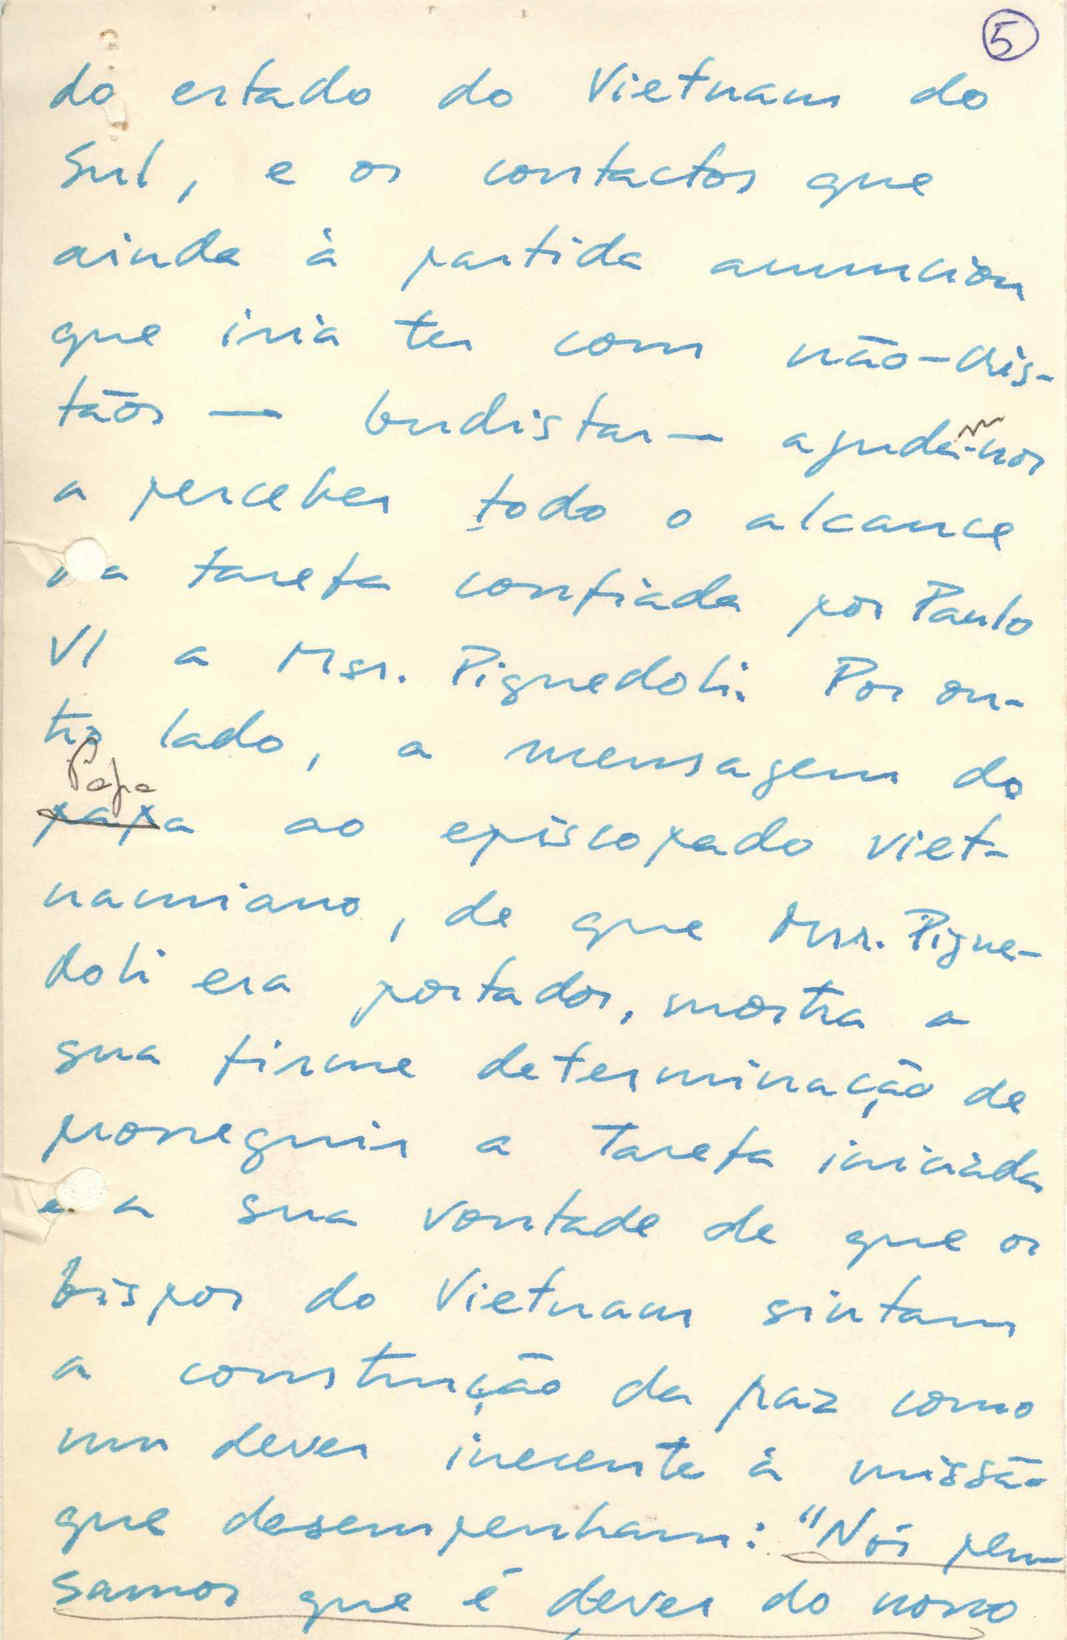 5
do estado do Vietnam do
Sul, e os contactos que
ainda à partida anunciou
que iria ter com não-cris-
tãos — budistas — ajudam-nos
a perceber todo o alcance
da tarefa confiada por Paulo
VI a Msr. Pignedoli. Por ou-
tro lado, a mensagem do
Papa
papa ao episcopado viet-
namiano, de que Msr. Pigne-
doli era portador, mostra a
sua firme determinação de
prosseguir a tarefa iniciada
e a sua vontade de que os
bispos do Vietnam sintam
a construção da paz como
um dever inerente à missão
que desempenham: "Nós pen-
samos que é dever do nosso